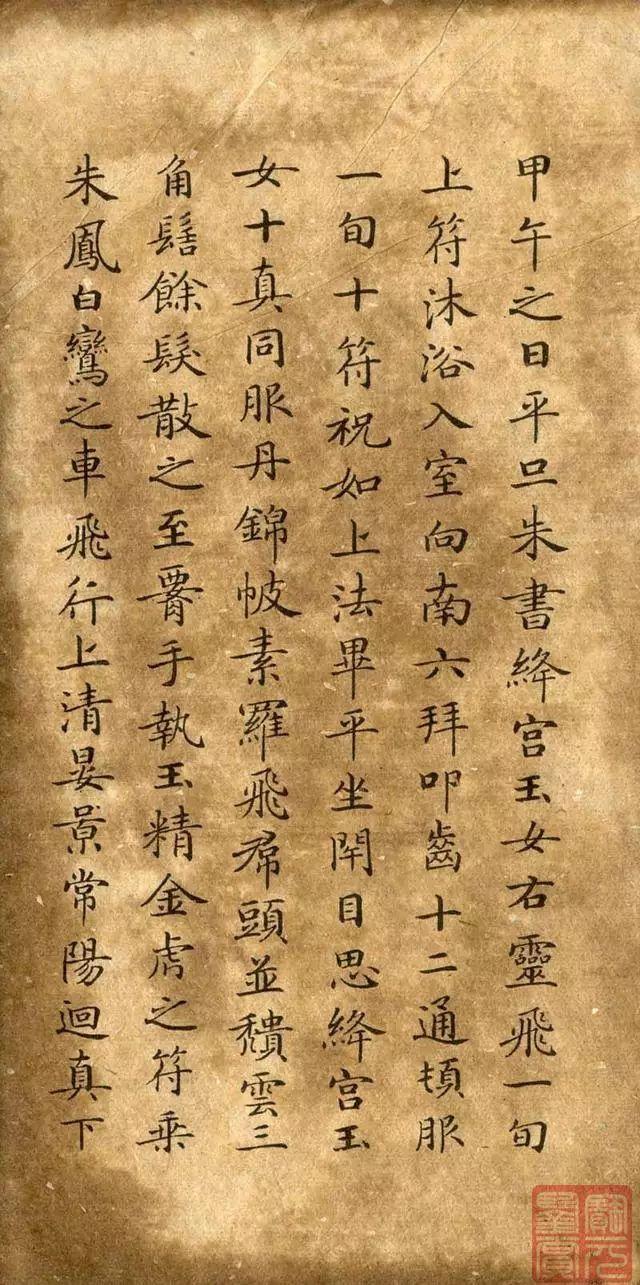 甲午之日平旦朱書絳宮玉女右靈飛一旬
上符沐浴入室向南六拜叩齒十二通頓服
一旬十符祝如上法畢平坐閇目思絳宮玉
女十真同服丹錦帔素羅飛帬頭並穨雲三
角髻餘髮散之至署手執玉精金虎之符乘
朱鳳白鸞之車飛行上清晏景常陽迴真下